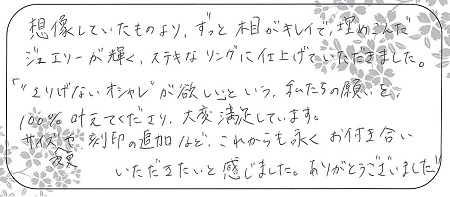 想像していたものより、ずっと木目がキレイで、埋めこんだ
ジュエリーが輝く、ステキなリングに仕上げていただきました。
「"さりげないオシャレ"が欲しい」という、私たちの願いを、
100% 叶えてくださり、大変満足しています。
サイズや変更 刻印の追加など、これからも永くお付き合い
いただきたいと感じました。ありがとうございました